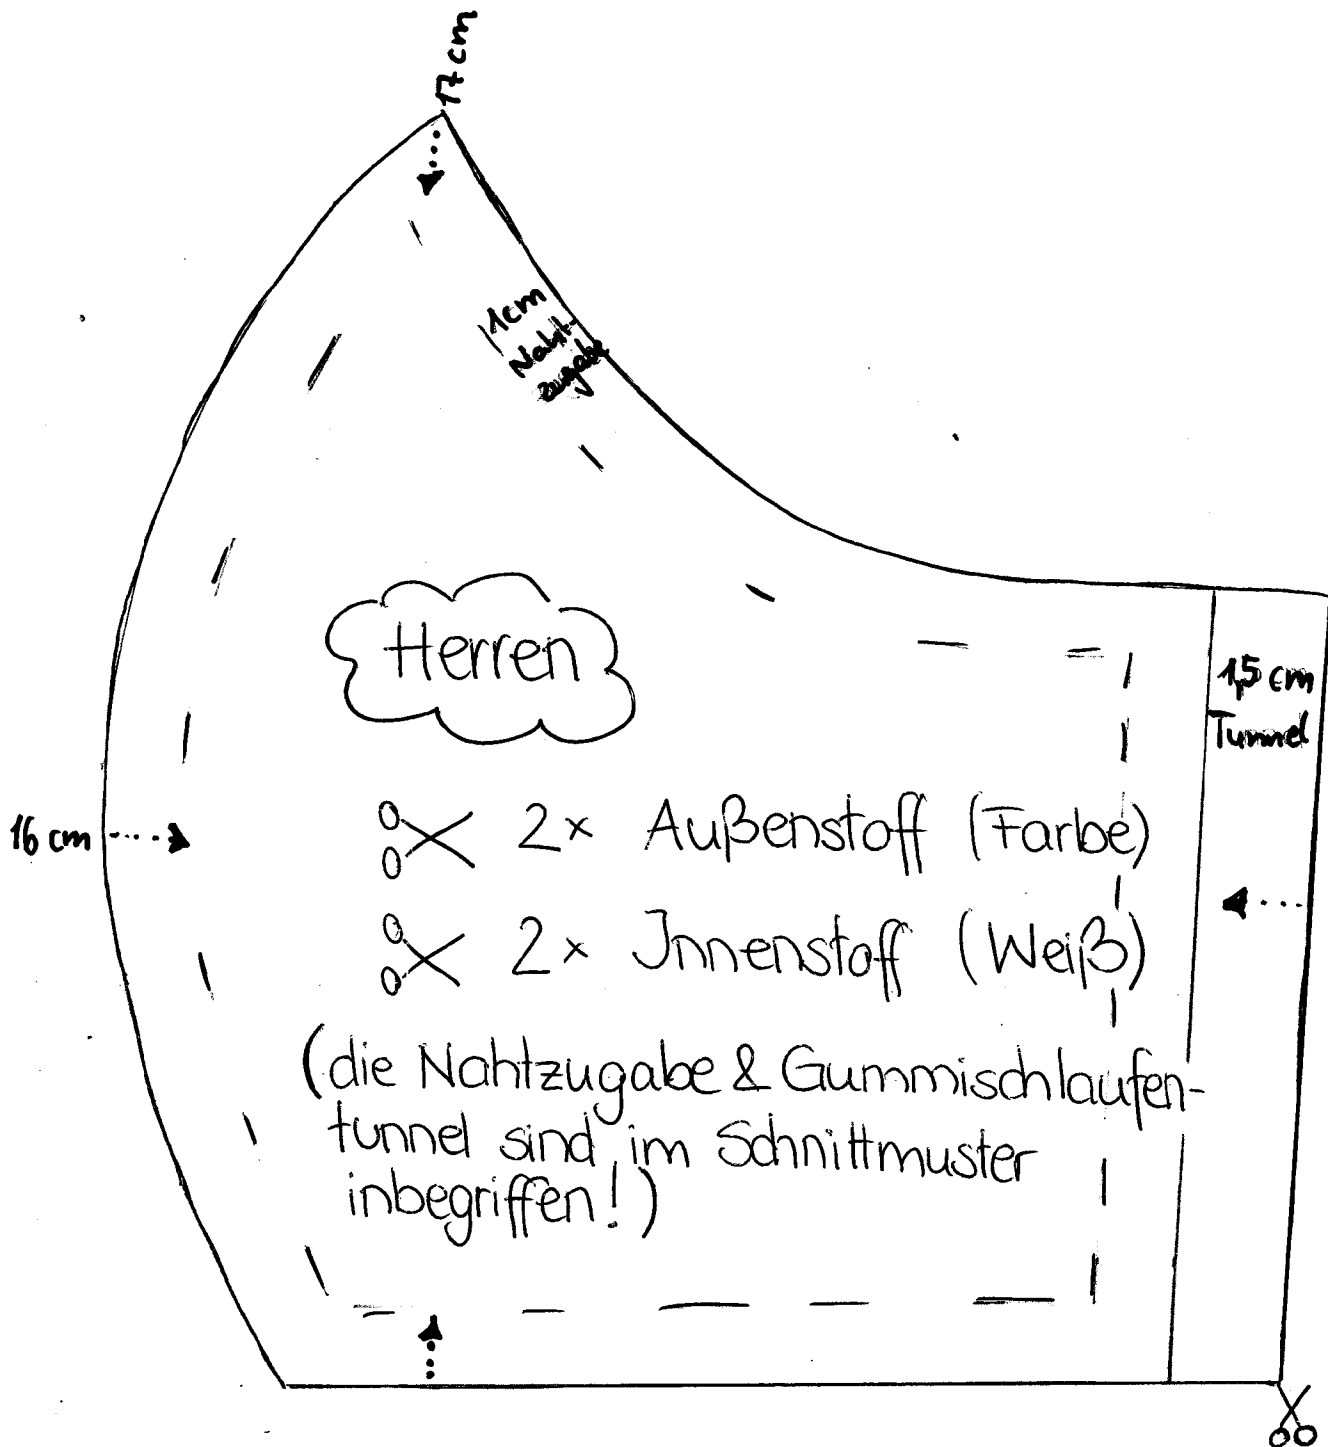 17 cm
1cm
Naht-
zugabe
Herren
1,5 cm
Tunnel
16 cm
2x Außenstoff (Farbe)
2x Innenstoff (Weiß)
(die Nahtzugabe & Gummischlaufen-
tunnel sind im Schnittmuster
inbegriffen!)